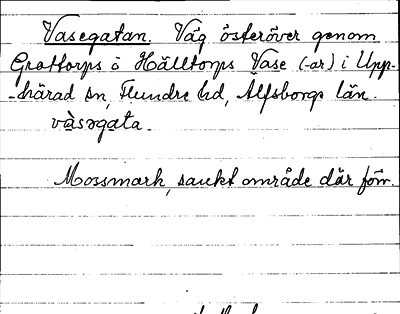 Vasegatan. Väg österöver genom
Grottorps o Hälltorps Vase (-ar) i Upp-
-härad sn, Flundre hd, Älfsborgs län.
vàsəgata.
Mossmark, sankt område där förr.